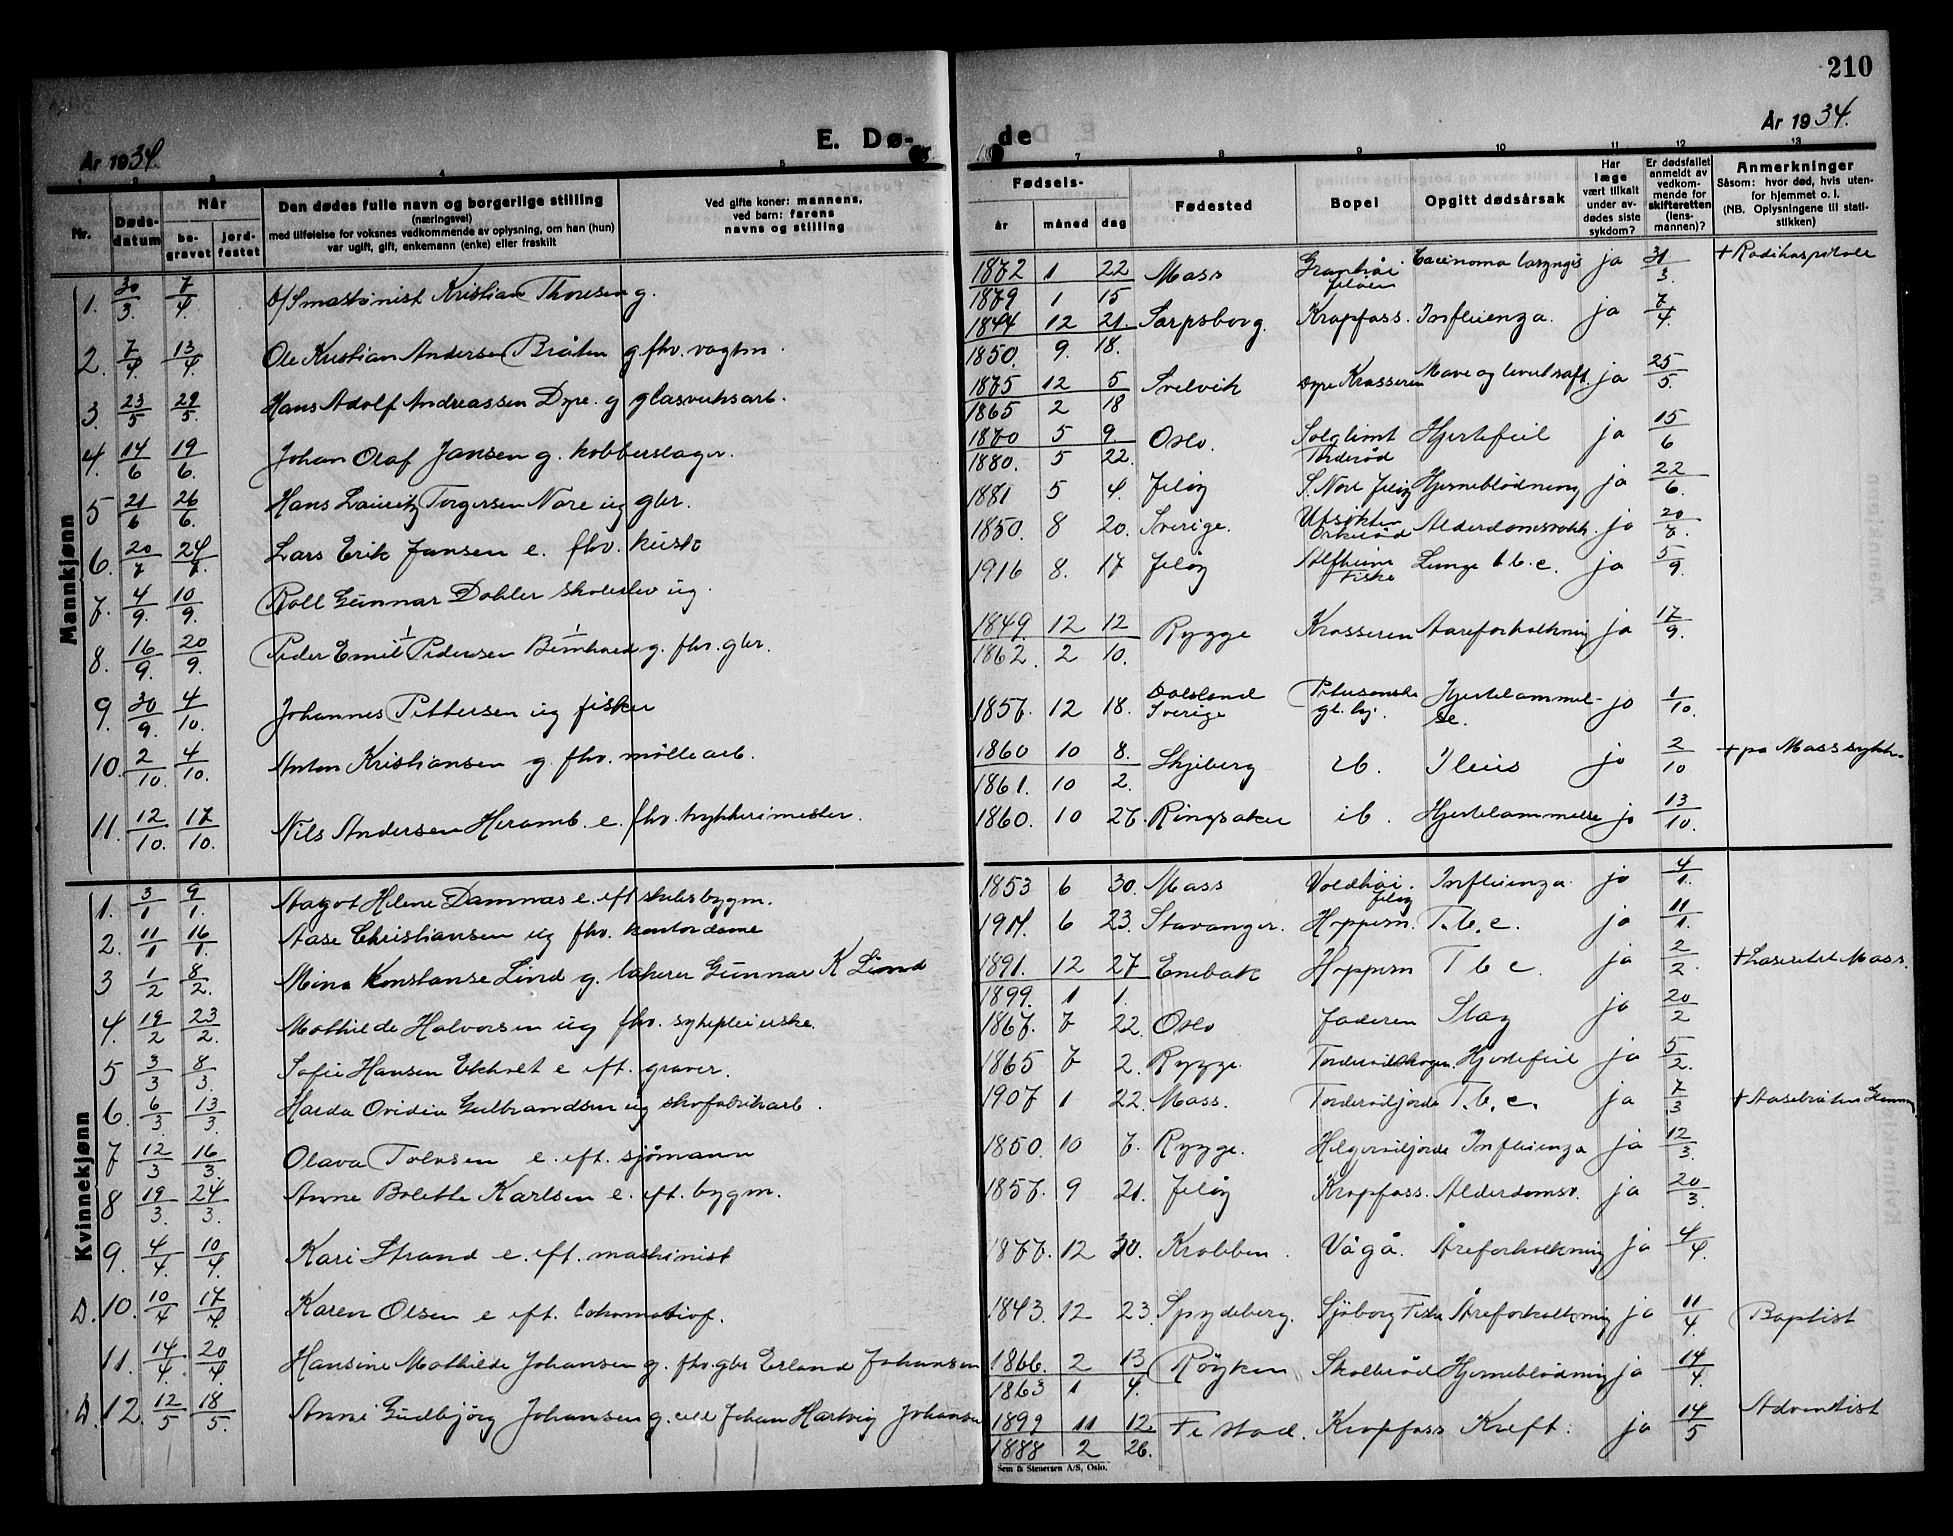 210
År 1934.
E. Dø-
de
År 1934.
Nr.
Døds-
datum
Når
be-
gravet
jord-
festet
Den dødes fulle navn og borgerlige stilling
(næringsvei)
med tilføielse for voksnes vedkommende av oplysning, om han (hun)
var ugift, gift, enkemann (enke) eller fraskilt
Ved gifte koner: mannens,
ved barn: farens
navns og stilling
Fødsels-
år måned dag
Fødested
Bopel
Opgitt dødsårsak
Har
læge
vært tilkalt
under av-
dødes siste
sykdom?
Er dødsfallet
anmeldt av
vedkom-
mende for
skifteretten
(lens-
mannen)?
Anmerkninger
Såsom: hvor død, hvis uten-
for hjemmet o. l.
(NB. Oplysningene til stati-
stikken)
Mannkjønn
1. 30/3. 7/4. Kristian Thoresen g. 1872 1 22 Moss ja 31/3. + Radihospitale
1879 1 15
2. 7/4. 13/4. Ole Kristian Andersen Bråten g fhv. vogtm. 1844 12 21. Sarpsborg. Kropfoss. Influenza. ja 7/4.
1850. 9. 18.
3. 23/5 29/5. Hans Adolf Andreassen Dyre. g glasverksarb. 1875 12 5 Svelvik Dyre Krosseren Mave og leverkraft. ja 25/5.
1865 2 18
4. 14/6 19/6. Johan Olaf Jansen g. kobberslager. 1870 5 9. Oslo. Solglimt Torderød Hjertefeil ja 15/6
1880. 5 22.
5 21/6 26/6. Hans Lauritz Torgersen Nore ug gbr. 1881 5 4. Jeløy S. Nore Jeløy Hjerneblødning ja 22/6.
6. 20/7 24/7. Lars Erik Jansen e. fhv. kusk 1850. 8 20. Sverige. Orkerød Alderdomssvakh. ja 20/7.
7. 4/9. 10/9. Rolf Gunnar Dohler skoleelev ug. 1916 8. 17 Jeløy Alfheim Fiske Lunge t.b.c. ja 5/9.
8. 16/9. 20/9. Peder Emil Pedersen g. fhv. gbr. 1849. 12 12 Rygge Krosseren Aareforkalkning ja 17/9.
1862. 2 10.
9. 30/9. 4/10. Johannes Pettersen ug fisker 1857. 12 18. Dalsland Sverige Petersonske gl. by. Hjertelammel- se. ja 1/10.
10. 2/10. 4/10. Anton Kristiansen g. fhv. møllearb. 1860 10 8. Skjeberg ib. Ileus ja 2/10 + på Moss sykeh.
1861. 10 2.
11. 12/10. 17/10. Nils Andersen Heramb. e. fhv. trykkerimester. 1860. 10 27. Ringsaker ib. Hjertelammelse ja 13/10.
Kvinnekjønn
1. 3/1 9/1. Aagot Helene Damnæs e. eft skibsbygm. 1853 6 30. Moss Voldhøi. Jeløy Influenza. ja 4/1.
2. 11/1 16/1. Aase Christiansen ug fhv. kontordame 6 23. Stavanger. Hoppern. T.b.c. ja 11/1.
3 1/2 8/2. Mina Konstanse Lind g. bakerer Gunnar K Lind 1891. 12 27 Enebak Hoppern T b c. ja 2/2. + Lasarettet Moss.
1899. 1 1.
4. 19/2 23/2. Mathilde Halvorsen ug fhv. sykepleierske. 1867. 7 22. Oslo Jaderen Slag ja 20/2
5 3/3 8/3. Sofie Hansen Ekholt e eft. graver. 1865 7 2. Rygge. Torderødskogen. Hjertefeil ja 5/2.
6. 6/3. 13/3. Harda Ovidia Gulbrandsen ug skofabrikarb. 1907 1 22. Moss. Torderødjordet T.b.c. ja 7/3
7 12/3 16/3. Olava Tolvsen e. eft. sjømann 1850. 10 7. Rygge. Helgerødjorde Influenza ja 12/3.
8 19/3. 24/3. Anne Bolette Karlsen e. eft. bygm. 1857. 9 21. Jeløy Kropfoss. Alderdomsv. ja 20/3
9. 4/4. 10/4. Kari Strand e. eft. maskinist 1877. 12 30. Krobben. Vågå. Åreforkalkning ja 4/4.
D. 10. 10/4 17/4. Karen Olsen e eft. lokomotivf. 1843. 12 23. Spydeberg. Sjøborg Fiske Åreforkalkning ja 11/4. Baptist
11. 14/4. 20/4. Hansine Mathilde Johansen g. fhv. gbr Erland Johansen 1866. 2 13 Røyken Skallerød Hjerneblødning ja 14/4.
1863 1 4.
D. 12. 12/5 18/5. Anne Gudbjørg Johansen g. Johan Hartvig Johansen 1899 11 12. Kropfoss Kreft. ja 14/5 Adventist
1888 2 26.
Sem & Stenersen A/S, Oslo.